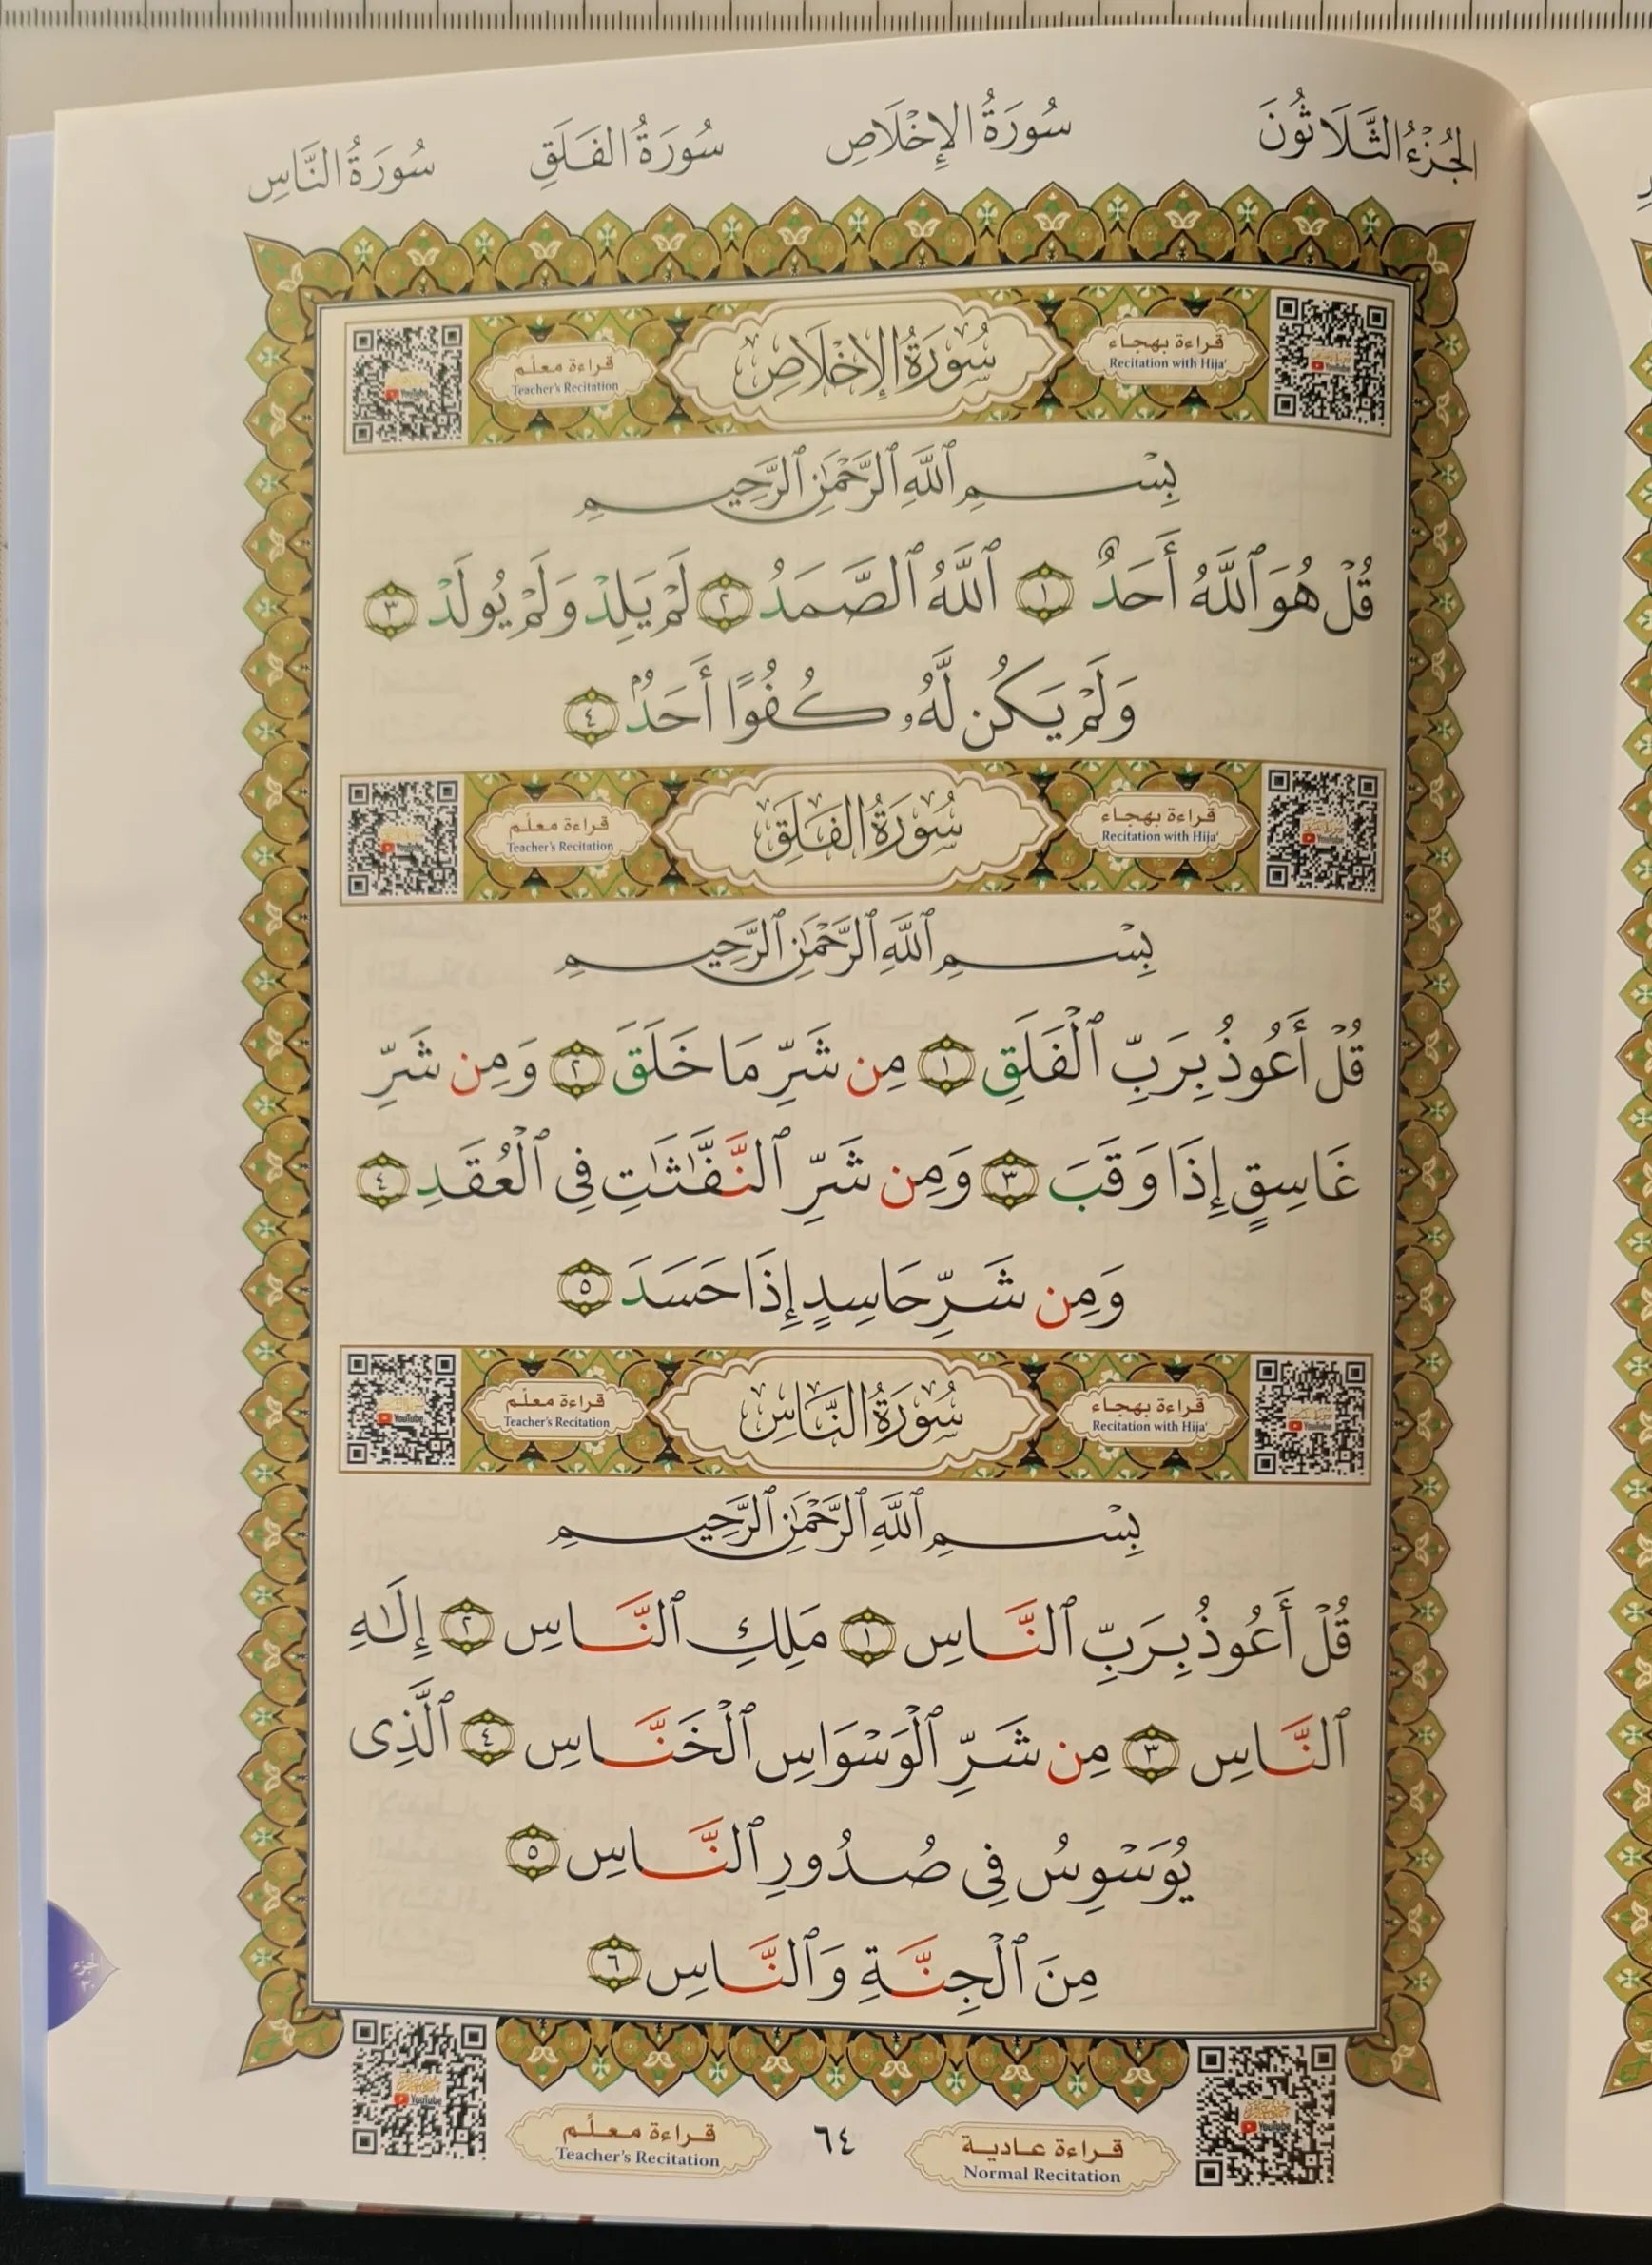 الجُزْءُ الثَّلَاثُونَ سُورَةُ الإِخْلَاصِ سُورَةُ الفَلَقِ سُورَةُ النَّاسِ
قراءة بهجاء
Recitation with Hija'
سُورَةُ الإِخْلَاصِ
قراءة معلّم
Teacher's Recitation
بِسْمِ ٱللَّهِ ٱلرَّحْمَٰنِ ٱلرَّحِيمِ
قُلْ هُوَ ٱللَّهُ أَحَدٌ ١ ٱللَّهُ ٱلصَّمَدُ ٢ لَمْ يَلِدْ وَلَمْ يُولَدْ ٣
وَلَمْ يَكُن لَّهُۥ كُفُوًا أَحَدٌۢ ٤
قراءة بهجاء
Recitation with Hija'
سُورَةُ الفَلَقِ
قراءة معلّم
Teacher's Recitation
بِسْمِ ٱللَّهِ ٱلرَّحْمَٰنِ ٱلرَّحِيمِ
قُلْ أَعُوذُ بِرَبِّ ٱلْفَلَقِ ١ مِن شَرِّ مَا خَلَقَ ٢ وَمِن شَرِّ
غَاسِقٍ إِذَا وَقَبَ ٣ وَمِن شَرِّ ٱلنَّفَّٰثَٰتِ فِى ٱلْعُقَدِ ٤
وَمِن شَرِّ حَاسِدٍ إِذَا حَسَدَ ٥
قراءة بهجاء
Recitation with Hija'
سُورَةُ النَّاسِ
قراءة معلّم
Teacher's Recitation
بِسْمِ ٱللَّهِ ٱلرَّحْمَٰنِ ٱلرَّحِيمِ
قُلْ أَعُوذُ بِرَبِّ ٱلنَّاسِ ١ مَلِكِ ٱلنَّاسِ ٢ إِلَٰهِ
ٱلنَّاسِ ٣ مِن شَرِّ ٱلْوَسْوَاسِ ٱلْخَنَّاسِ ٤ ٱلَّذِى
يُوَسْوِسُ فِى صُدُورِ ٱلنَّاسِ ٥
مِنَ ٱلْجِنَّةِ وَٱلنَّاسِ ٦
جزء
٣٠
YouTube
قراءة عادية
Normal Recitation
٦٤
قراءة معلّم
Teacher's Recitation
YouTube